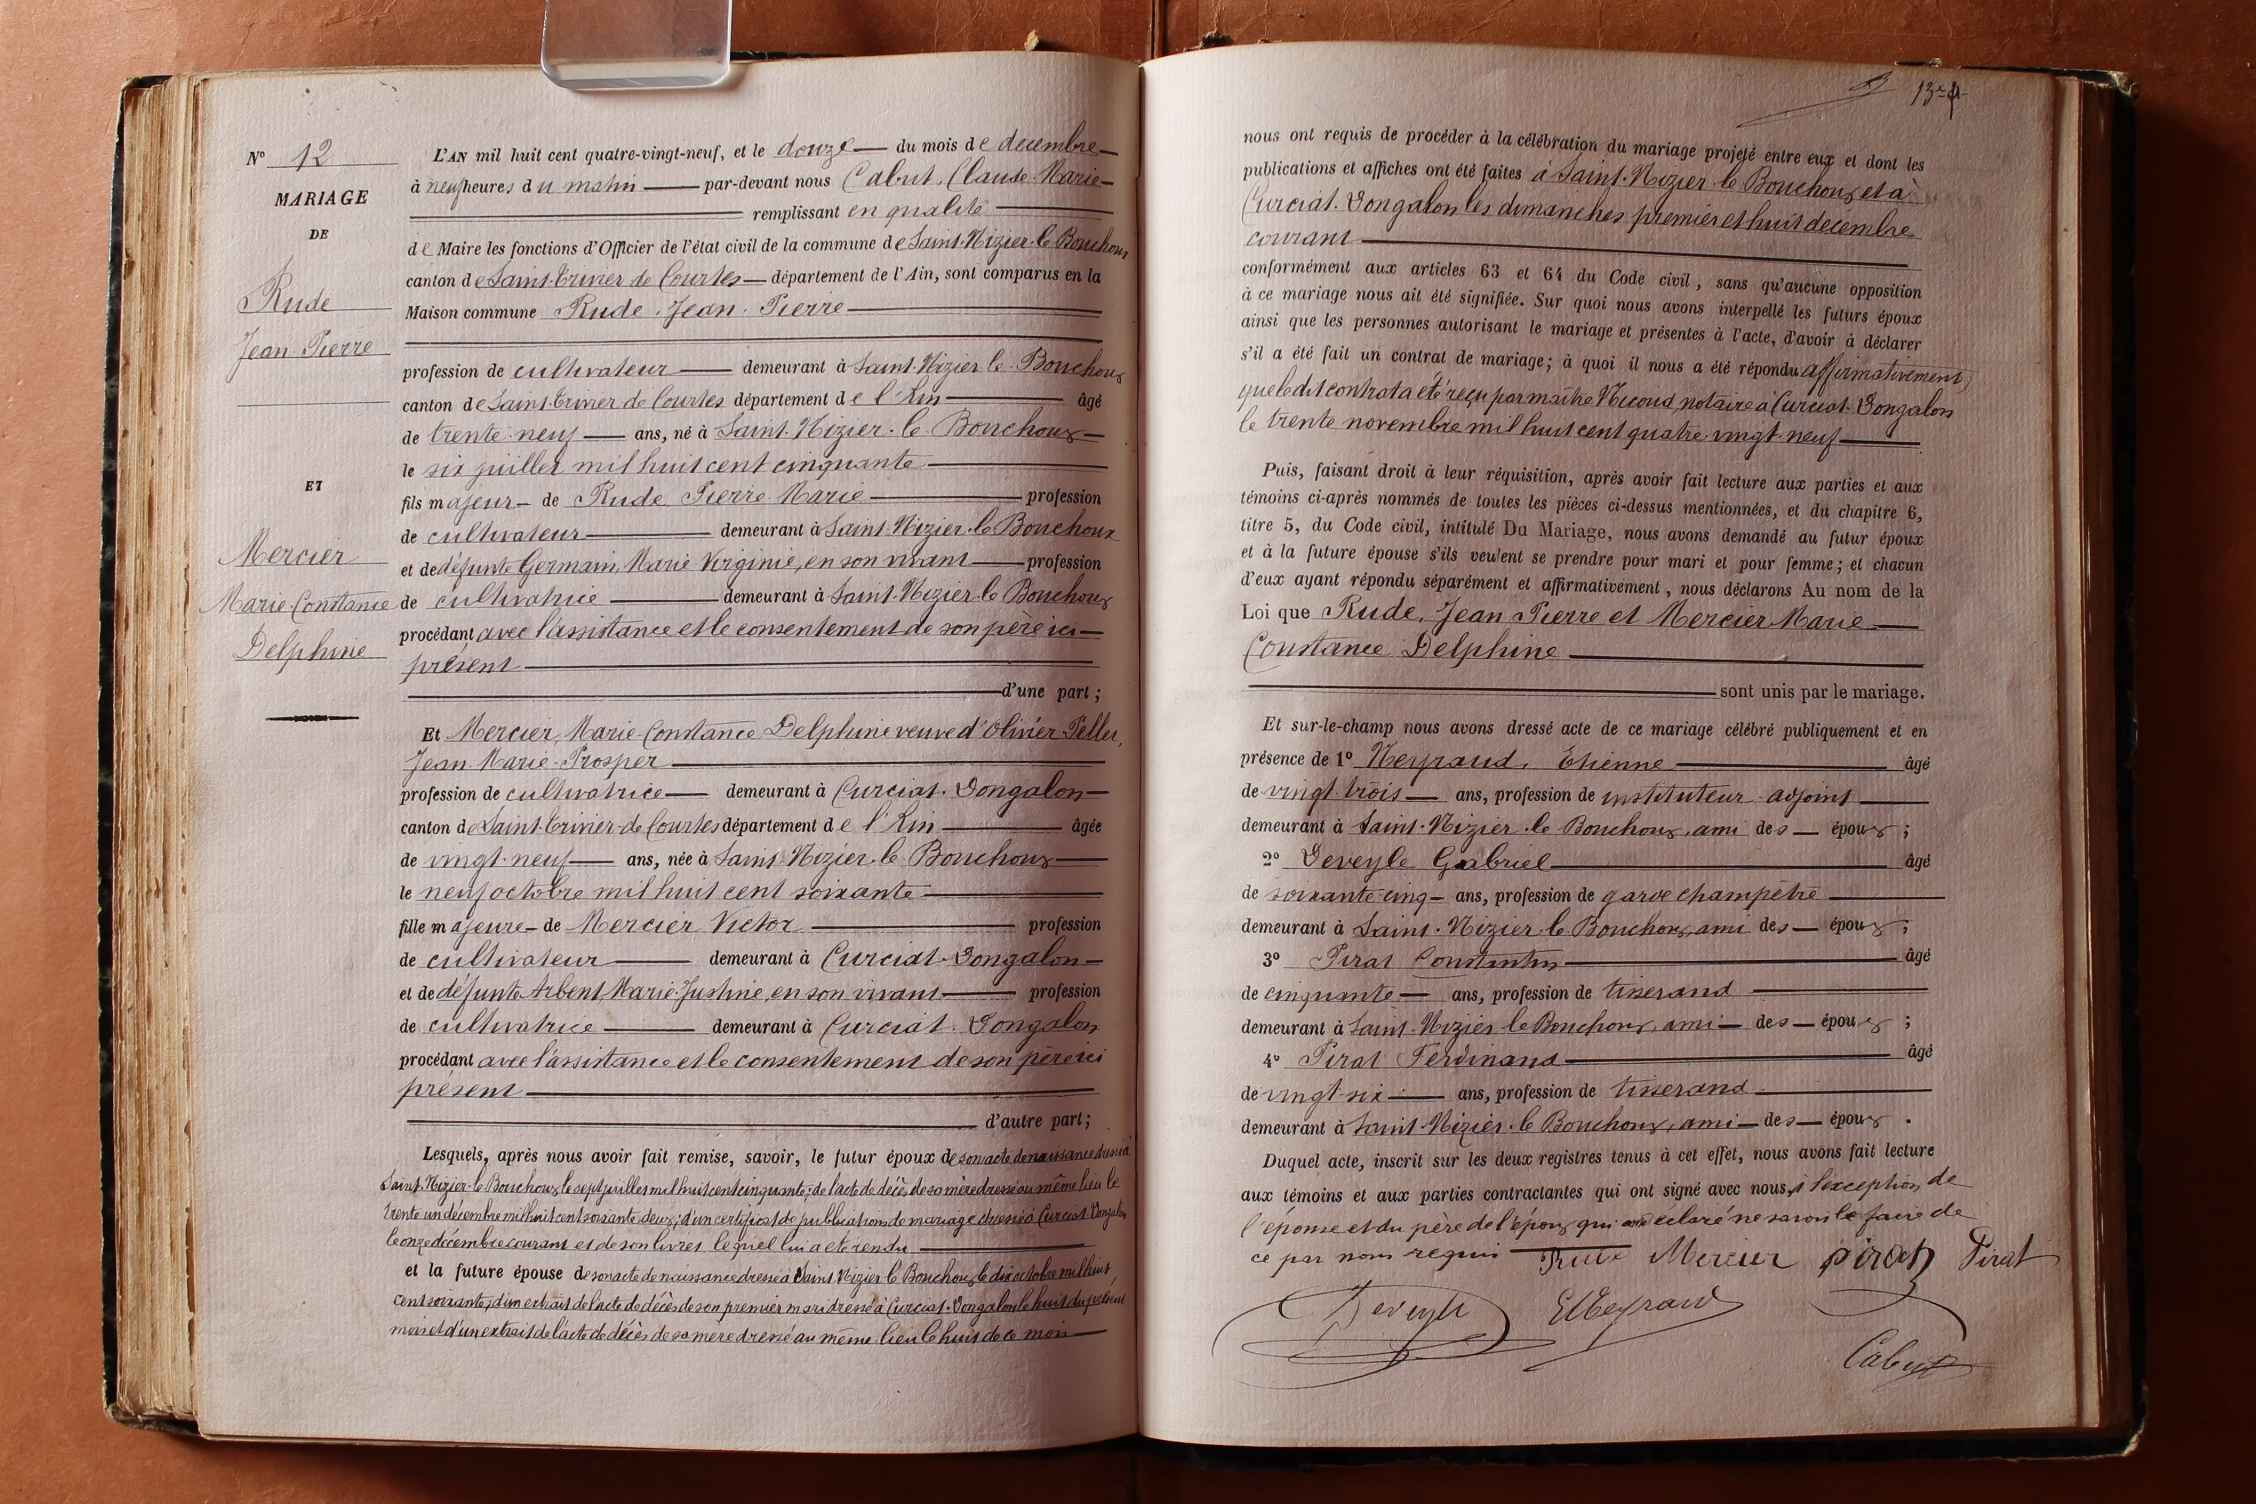 N° 12
MARIAGE
DE
Rude
Jean Pierre
ET
Mercier
Marie-Constance
Delphine
L'AN mil huit cent quatre-vingt-neuf, et le douze du mois de decembre
à neuf heures du matin par-devant nous Cabut, Claude-Marie
remplissant en qualité
de Maire les fonctions d'Officier de l'état civil de la commune de Saint-Nizier-le Bouchoux
canton de Saint-Trivier de Courtes département de l'Ain, sont comparus en la
Maison commune Rude, Jean-Pierre
profession de cultivateur demeurant à Saint-Nizier le-Bouchoux
canton de Saint-Trivier de Courtes département de l'Ain âgé
de trente-neuf ans, né à Saint-Nizier-le Bouchoux
le six juillet mil huit cent cinquante
fils majeur de Rude Pierre Marie profession
de cultivateur demeurant à Saint-Nizier-le Bouchoux
et de défunte Germain, Marie Virginie, en son vivant profession
de cultivatrice demeurant à Saint-Nizier-le Bouchoux
procédant avec l'assistance et le consentement de son père ici
présent
d'une part ;
Et Mercier, Marie-Constance Delphine veuve d'Olivier Pellet,
Jean-Marie-Prosper
profession de cultivatrice demeurant à Curciat-Dongalon
canton de Saint-Trivier-de Courtes département de l'Ain âgée
de vingt-neuf ans, née à Saint Nizier-le Bouchoux
le neuf octobre mil huit cent soixante
fille majeure de Mercier Victor profession
de cultivateur demeurant à Curciat-Dongalon
et de défunte Arbent, Marie-Justine, en son vivant profession
de cultivatrice demeurant à Curciat-Dongalon
procédant avec l'assistance et le consentement de son père ici
présent
d'autre part ;
Lesquels, après nous avoir fait remise, savoir, le futur époux de son acte de naissance dressé à
Saint-Nizier-le Bouchoux, le sept juillet mil huit cent cinquante; de l'acte de décès de sa mère dressé au même lieu le
trente un décembre mil huit cent soixante deux; d'un certificat de publications de mariage dressé à Curciat-Dongalon
le onze decembre courant et de son livret, lequel lui a été rendu
et la future épouse de son acte de naissance dressé à Saint-Nizier le Bouchoux, le dix octobre mil huit
cent soixante; d'un extrait de l'acte de décès de son premier mari dressé à Curciat-Dongalon le huit du présent
mois et d'un extrait de l'acte de décès de sa mère dressé au même lieu le huit de ce mois
nous ont requis de procéder à la célébration du mariage projeté entre eux et dont les
publications et affiches ont été faites à Saint-Nizier-le Bouchoux et à
Curciat-Dongalon les dimanches premier et huit decembre
courant
conformément aux articles 63 et 64 du Code civil, sans qu'aucune opposition
à ce mariage nous ait été signifiée. Sur quoi nous avons interpellé les futurs époux
ainsi que les personnes autorisant le mariage et présentes à l'acte, d'avoir à déclarer
s'il a été fait un contrat de mariage ; à quoi il nous a été répondu affirmativement,
que le dit contrat a été reçu par maître Nicoud, notaire à Curciat-Dongalon
le trente novembre mil huit cent quatre-vingt-neuf
Puis, faisant droit à leur réquisition, après avoir fait lecture aux parties et aux
témoins ci-après nommés de toutes les pièces ci-dessus mentionnées, et du chapitre 6,
titre 5, du Code civil, intitulé Du Mariage, nous avons demandé au futur époux
et à la future épouse s'ils veulent se prendre pour mari et pour femme ; et chacun
d'eux ayant répondu séparément et affirmativement, nous déclarons Au nom de la
Loi que Rude, Jean Pierre et Mercier Marie
Constance Delphine
sont unis par le mariage.
Et sur-le-champ nous avons dressé acte de ce mariage célébré publiquement et en
présence de 1° Neyraud, Etienne âgé
de vingt-trois ans, profession de instituteur-adjoint
demeurant à Saint-Nizier-le Bouchoux, ami des époux ;
2° Deveyle Gabriel âgé
de soixante-cinq ans, profession de garde champêtre
demeurant à Saint-Nizier le Bouchoux, ami des époux ;
3° Pirat Constantin âgé
de cinquante ans, profession de tisserand
demeurant à Saint-Nizier le Bouchoux, ami des époux ;
4° Pirat Ferdinand âgé
de vingt-six ans, profession de tisserand
demeurant à Saint-Nizier-le Bouchoux, ami des époux .
Duquel acte, inscrit sur les deux registres tenus à cet effet, nous avons fait lecture
aux témoins et aux parties contractantes qui ont signé avec nous, à l'exception de
l'épouse et du père de l'époux qui ont déclaré ne savoir le faire de
ce par nous requis Rude Mercier Pirat Pirat
Deveyle ENeyraud
Cabut